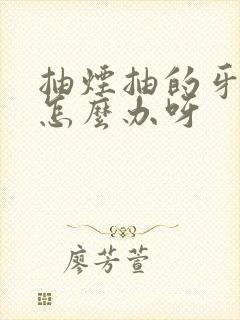 抽煙抽的牙
怎麼办呀
廖芳萱